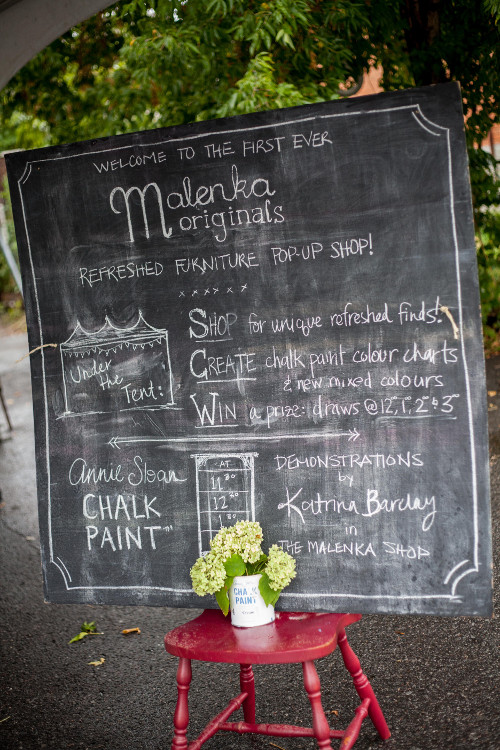 WELCOME TO THE FIRST EVER
Malenka
originals
REFRESHED FURNITURE POP-UP SHOP!
x x x x x x
Under
the
Tent:
SHOP for unique refreshed finds!
CREATE chalk paint colour charts
& new mixed colours
WIN a prize: draws @ 12, 1, 2 & 3
Annie Sloan
CHALK
PAINT™
AT
11 30
12 30
1 30
DEMONSTRATIONS
by
Katrina Barclay
in
THE MALENKA SHOP
CHALK
PAINT